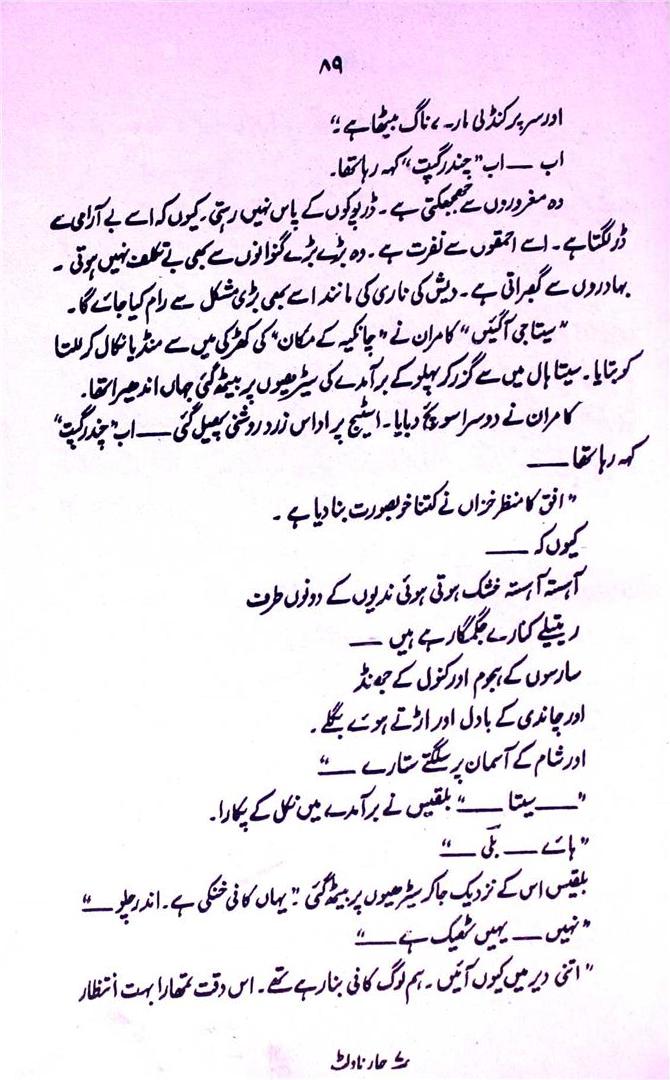 ۸۹
اور سر پر کنڈلی مارے ناگ بیٹھا ہے :"
اب — اب "چندر گپت" کہہ رہا تھا۔
وہ مغروروں سے جھجھکتی ہے۔ ڈرپوکوں کے پاس نہیں رہتی۔ کیوں کہ اسے بے آرامی سے
ڈر لگتا ہے۔ اسے احمقوں سے نفرت ہے۔ وہ بڑے بڑے گنوانوں سے بھی بے تکلف نہیں ہوتی ۔
بہادروں سے گھبراتی ہے۔ دیش کی ناری کی مانند اسے بھی بڑی مشکل سے رام کیا جائے گا۔
"سیتا جی آگئیں" کامران نے "چانکیہ کے مکان" کی کھڑکی میں سے منڈیا نکال کر للتا
کو بتایا۔ سیتا ہال میں سے گزر کر پہلو کے برآمدے کی سیڑھیوں پر بیٹھ گئی جہاں اندھیرا تھا۔
کامران نے دوسرا سوئچ دبایا۔ اسٹیج پر اداس زرد روشنی پھیل گئی — اب "چندر گپت"
کہہ رہا تھا —
"افق کا منظر خزاں نے کتنا خوبصورت بنا دیا ہے ۔
کیوں کہ —
آہستہ آہستہ خشک ہوتی ہوئی ندیوں کے دونوں طرف
ریتیلے کنارے جگمگا رہے ہیں —
سارسوں کے ہجوم اور کنول کے جھنڈ
اور چاندی کے بادل اور اڑتے ہوئے بگلے۔
اور شام کے آسمان پر سلگتے ستارے —"
"— سیتا —" بلقیس نے برآمدے میں نکل کے پکارا۔
"ہائے — بلّی —"
بلقیس اس کے نزدیک جا کر سیڑھیوں پر بیٹھ گئی "یہاں کافی خنکی ہے۔ اندر چلو —"
"نہیں — یہیں ٹھیک ہے —"
"اتنی دیر میں کیوں آئیں۔ ہم لوگ کافی بنا رہے تھے۔ اس وقت تمھارا بہت انتظار
چار ناولٹ